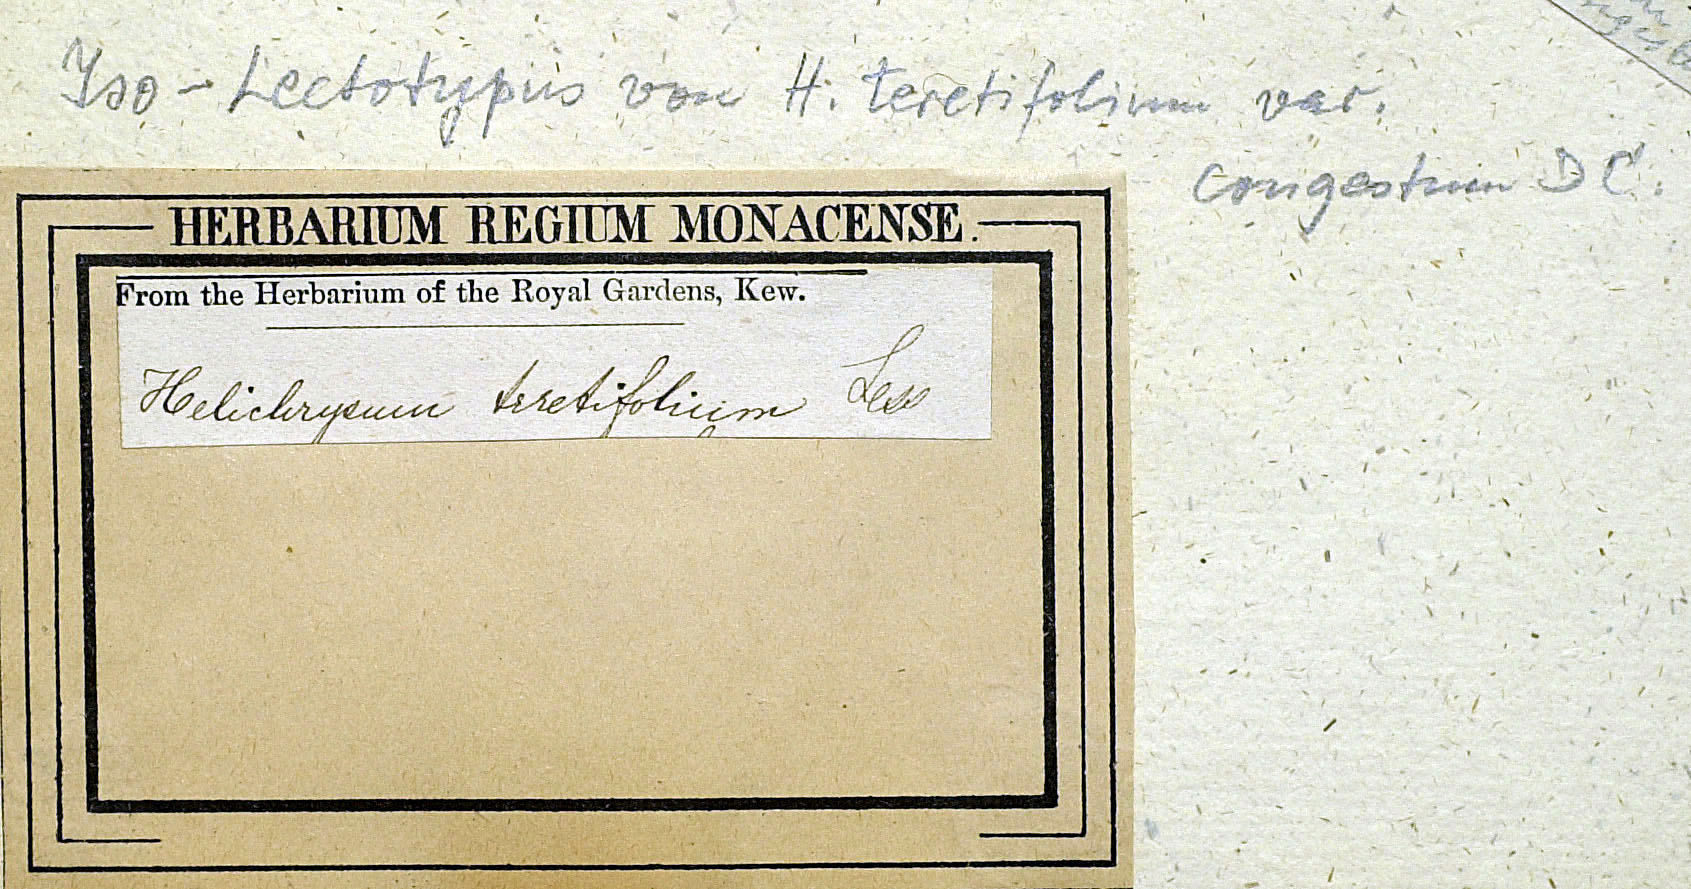 Iso - Lectotypus von H. teretifolium var.
congestum DC.
HERBARIUM REGIUM MONACENSE.
From the Herbarium of the Royal Gardens, Kew.
Helichrysum teretifolium Less